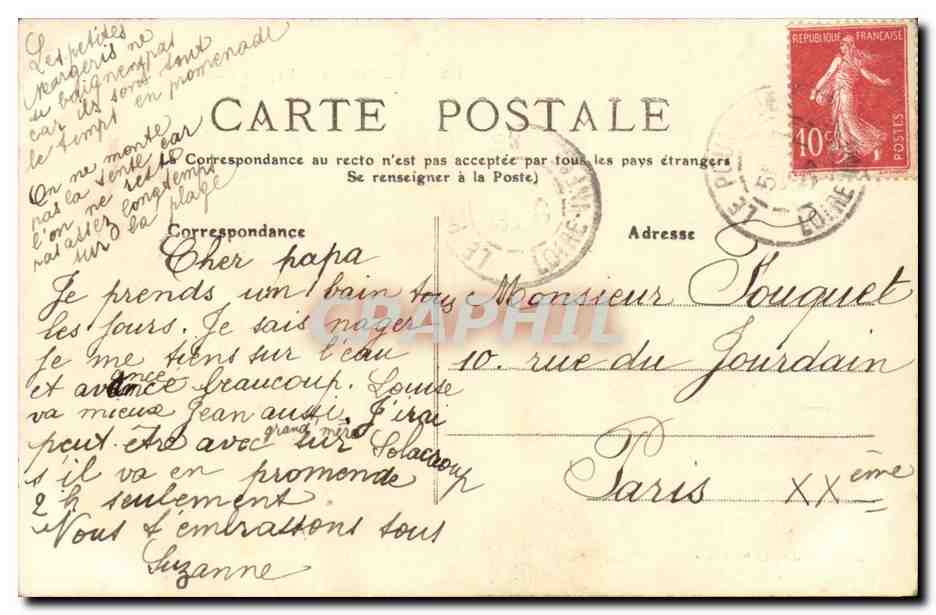 Les petites
Margeris ne
se baignent pas
car ils sont tout
le temps en promenade
On ne monte
pas la tente car
l'on ne reste
pas assez longtemps
sur la plage
REPUBLIQUE FRANÇAISE
10c
POSTES
CARTE POSTALE
La Correspondance au recto n'est pas acceptée par tous les pays étrangers
Se renseigner à la Poste)
Correspondance
Adresse
LOIRE INF
LE
LE POU
LOIRE INF
Cher papa
Je prends un bain tous
les jours. Je sais nager
Je me tiens sur l'eau
et avance beaucoup. Louise
va mieux Jean aussi. J'irai
peut être avec grand'mère sur Solacroup
s'il va en promende
2 h seulement
Nous t'embrassons tous
Suzanne
Monsieur Pouquet
10. rue du Jourdain
Paris XXème
CRAPHIL